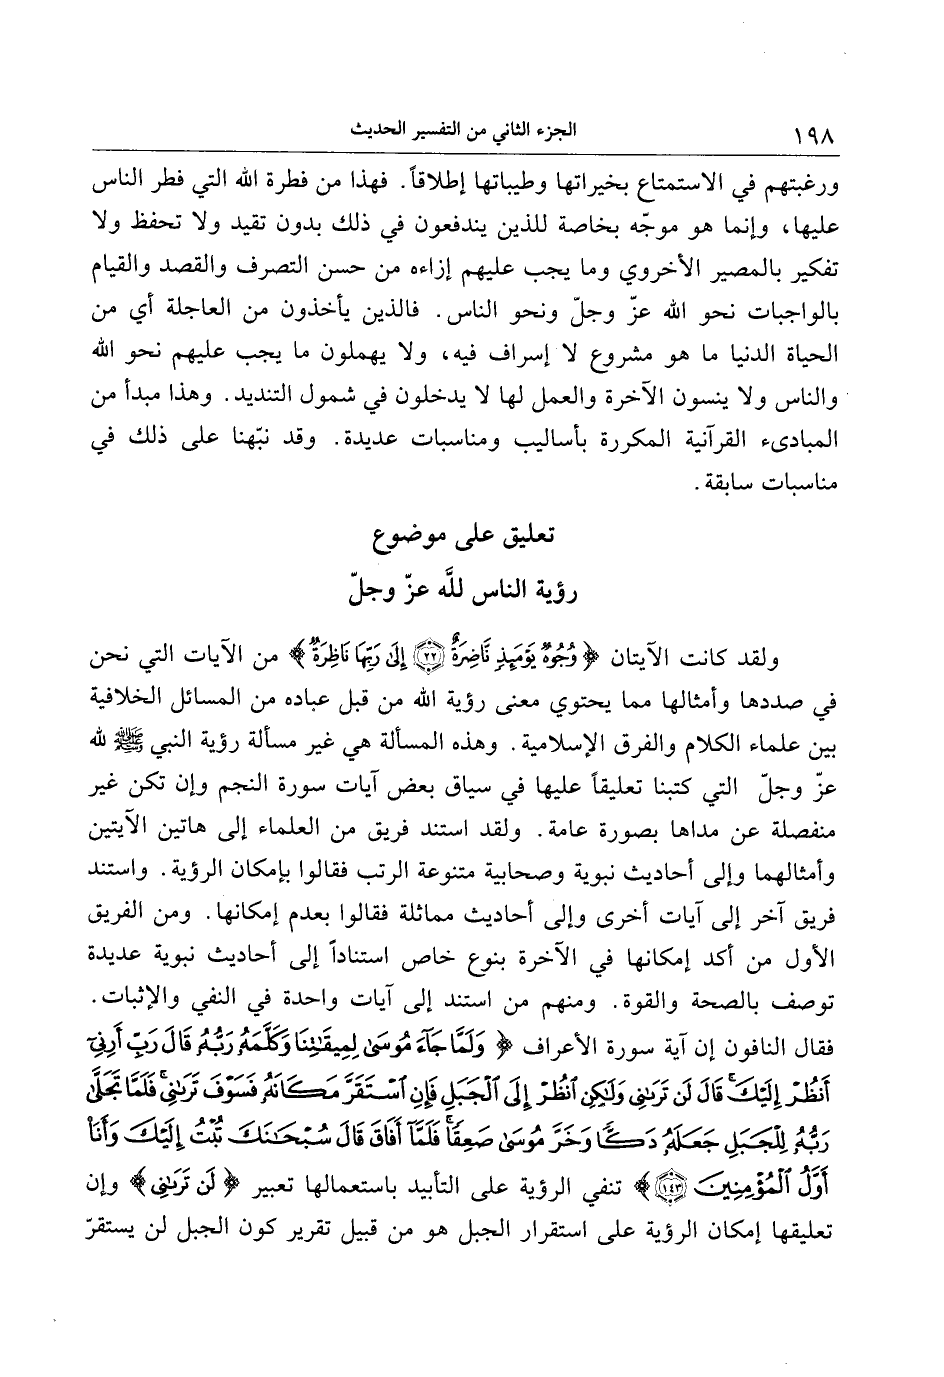 ١٩٨ الجزء الثاني من التفسير الحديث
ورغبتهم في الاستمتاع بخيراتها وطيباتها إطلاقاً. فهذا من فطرة الله التي فطر الناس
عليها، وإنما هو موجّه بخاصة للذين يندفعون في ذلك بدون تقيد ولا تحفظ ولا
تفكير بالمصير الأخروي وما يجب عليهم إزاءه من حسن التصرف والقصد والقيام
بالواجبات نحو الله عزّ وجلّ ونحو الناس. فالذين يأخذون من العاجلة أي من
الحياة الدنيا ما هو مشروع لا إسراف فيه، ولا يهملون ما يجب عليهم نحو الله
والناس ولا ينسون الآخرة والعمل لها لا يدخلون في شمول التنديد. وهذا مبدأ من
المبادىء القرآنية المكررة بأساليب ومناسبات عديدة. وقد نبّهنا على ذلك في
مناسبات سابقة.
تعليق على موضوع
رؤية الناس للَّه عزّ وجلّ
ولقد كانت الآيتان ﴿ وُجُوهٌ يَوْمَئِذٍ نَّاضِرَةٌ ٢٢ إِلَى رَبِّهَا نَاظِرَةٌ ﴾ من الآيات التي نحن
في صددها وأمثالها مما يحتوي معنى رؤية الله من قبل عباده من المسائل الخلافية
بين علماء الكلام والفرق الإسلامية. وهذه المسألة هي غير مسألة رؤية النبي ﷺ لله
عزّ وجلّ التي كتبنا تعليقاً عليها في سياق بعض آيات سورة النجم وإن تكن غير
منفصلة عن مداها بصورة عامة. ولقد استند فريق من العلماء إلى هاتين الآيتين
وأمثالهما وإلى أحاديث نبوية وصحابية متنوعة الرتب فقالوا بإمكان الرؤية. واستند
فريق آخر إلى آيات أخرى وإلى أحاديث مماثلة فقالوا بعدم إمكانها. ومن الفريق
الأول من أكد إمكانها في الآخرة بنوع خاص استناداً إلى أحاديث نبوية عديدة
توصف بالصحة والقوة. ومنهم من استند إلى آيات واحدة في النفي والإثبات.
فقال النافون إن آية سورة الأعراف ﴿ وَلَمَّا جَآءَ مُوسَىٰ لِمِيقَٰتِنَا وَكَلَّمَهُۥ رَبُّهُۥ قَالَ رَبِّ أَرِنِيٓ
أَنظُرْ إِلَيْكَ ۚ قَالَ لَن تَرَىٰنِي وَلَٰكِنِ ٱنظُرْ إِلَى ٱلْجَبَلِ فَإِنِ ٱسْتَقَرَّ مَكَانَهُۥ فَسَوْفَ تَرَىٰنِي ۚ فَلَمَّا تَجَلَّىٰ
رَبُّهُۥ لِلْجَبَلِ جَعَلَهُۥ دَكًّا وَخَرَّ مُوسَىٰ صَعِقًا ۚ فَلَمَّآ أَفَاقَ قَالَ سُبْحَٰنَكَ تُبْتُ إِلَيْكَ وَأَنَا۠
أَوَّلُ ٱلْمُؤْمِنِينَ ١٤٣ ﴾ تنفي الرؤية على التأبيد باستعمالها تعبير ﴿ لَن تَرَىٰنِي ﴾ وإن
تعليقها إمكان الرؤية على استقرار الجبل هو من قبيل تقرير كون الجبل لن يستقرّ